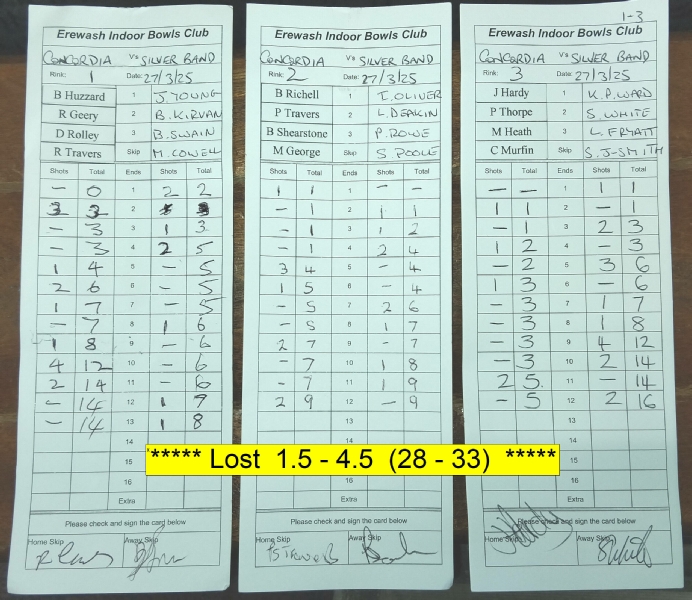 Erewash Indoor Bowls Club
CONCORDIA Vs SILVER BAND
Rink: 1 Date: 27/3/25
B Huzzard 1 J. YOUNG
R Geery 2 B. KIRVAN
D Rolley 3 B. SWAIN
R Travers Skip M. COWELL
Shots Total Ends Shots Total
- 0 1 2 2
3 3 2
- 3 3 1 3
- 3 4 2 5
1 4 5 - 5
2 6 6 - 5
1 7 7 - 5
- 7 8 1 6
1 8 9 - 6
4 12 10 - 6
2 14 11 - 6
- 14 12 1 7
- 14 13 1 8
14
15
16
Extra
Please check and sign the card below
Home Skip Away Skip
Erewash Indoor Bowls Club
CONCORDIA Vs SILVER BAND
Rink: 2 Date: 27/3/25
B Richell 1 T. OLIVER
P Travers 2 L. DEAKIN
B Shearstone 3 P. ROWE
M George Skip S. POOLE
Shots Total Ends Shots Total
1 1 1 - -
- 1 2 1 1
- 1 3 1 2
- 1 4 2 4
3 4 5 - 4
1 5 6 - 4
- 5 7 2 6
- 5 8 1 7
2 7 9 - 7
- 7 10 1 8
- 7 11 1 9
2 9 12 - 9
13
14
15
16
Extra
Please check and sign the card below
Home Skip Away Skip
1-3
Erewash Indoor Bowls Club
CONCORDIA Vs SILVER BAND
Rink: 3 Date: 27/3/25
J Hardy 1 K. P. WARD
P Thorpe 2 S. WHITE
M Heath 3 L. FRYATT
C Murfin Skip S. J-SMITH
Shots Total Ends Shots Total
- - 1 1 1
1 1 2 - 1
- 1 3 2 3
1 2 4 - 3
- 2 5 3 6
1 3 6 - 6
- 3 7 1 7
- 3 8 1 8
- 3 9 4 12
- 3 10 2 14
2 5. 11 - 14
- 5 12 2 16
13
14
15
16
Extra
Please check and sign the card below
Home Skip Away Skip
***** Lost 1.5 - 4.5 (28 - 33) *****